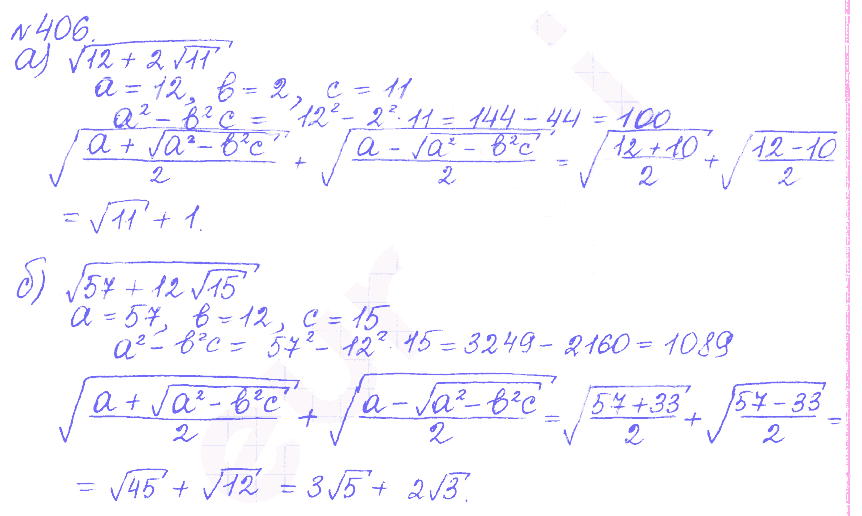 № 406.
а) √(12 + 2√11)
a = 12, b = 2, c = 11
a² − b²c = 12² − 2² · 11 = 144 − 44 = 100
√((a + √(a² − b²c))/2) + √((a − √(a² − b²c))/2) = √((12 + 10)/2) + √((12 − 10)/2)
= √11 + 1.
б) √(57 + 12√15)
a = 57, b = 12, c = 15
a² − b²c = 57² − 12² · 15 = 3249 − 2160 = 1089
√((a + √(a² − b²c))/2) + √((a − √(a² − b²c))/2) = √((57 + 33)/2) + √((57 − 33)/2) =
= √45 + √12 = 3√5 + 2√3.